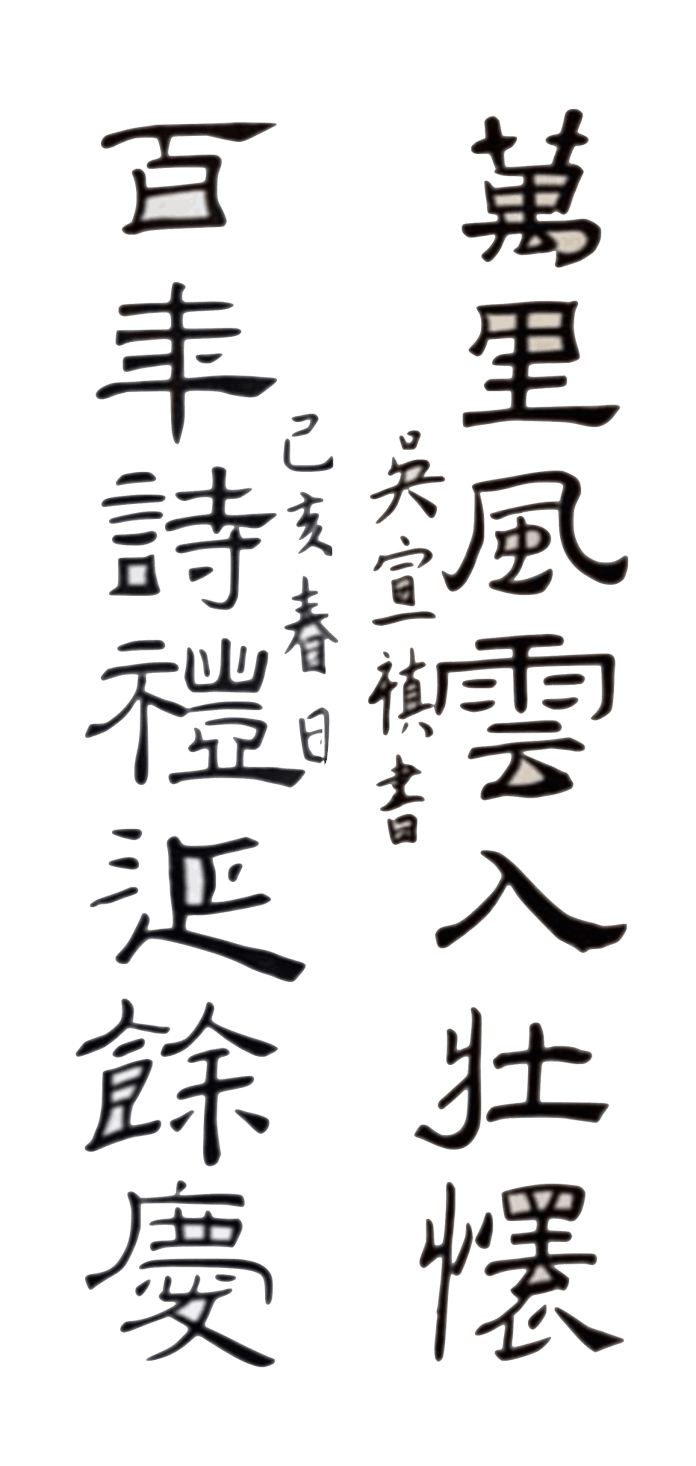 萬里風雲入壯懷
吳宣禛書
己亥春日
百年詩禮延餘慶